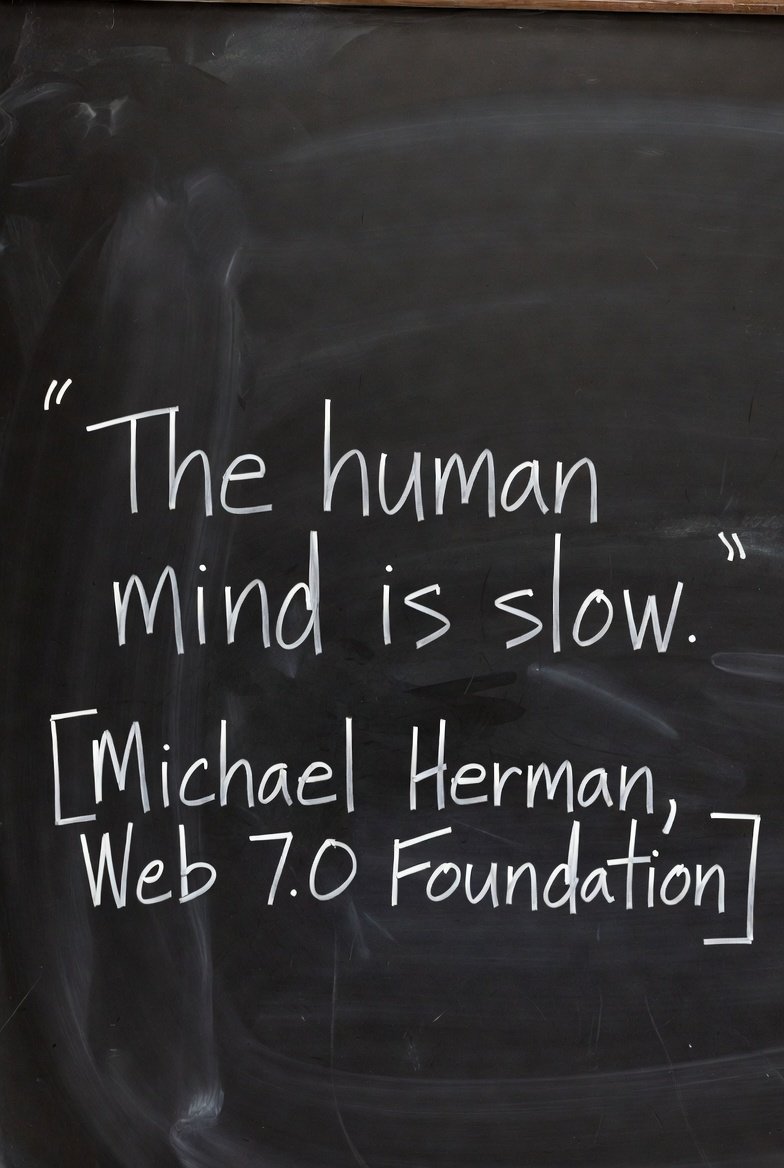 “The human
mind is slow.”
[Michael Herman,
Web 7.0 Foundation]